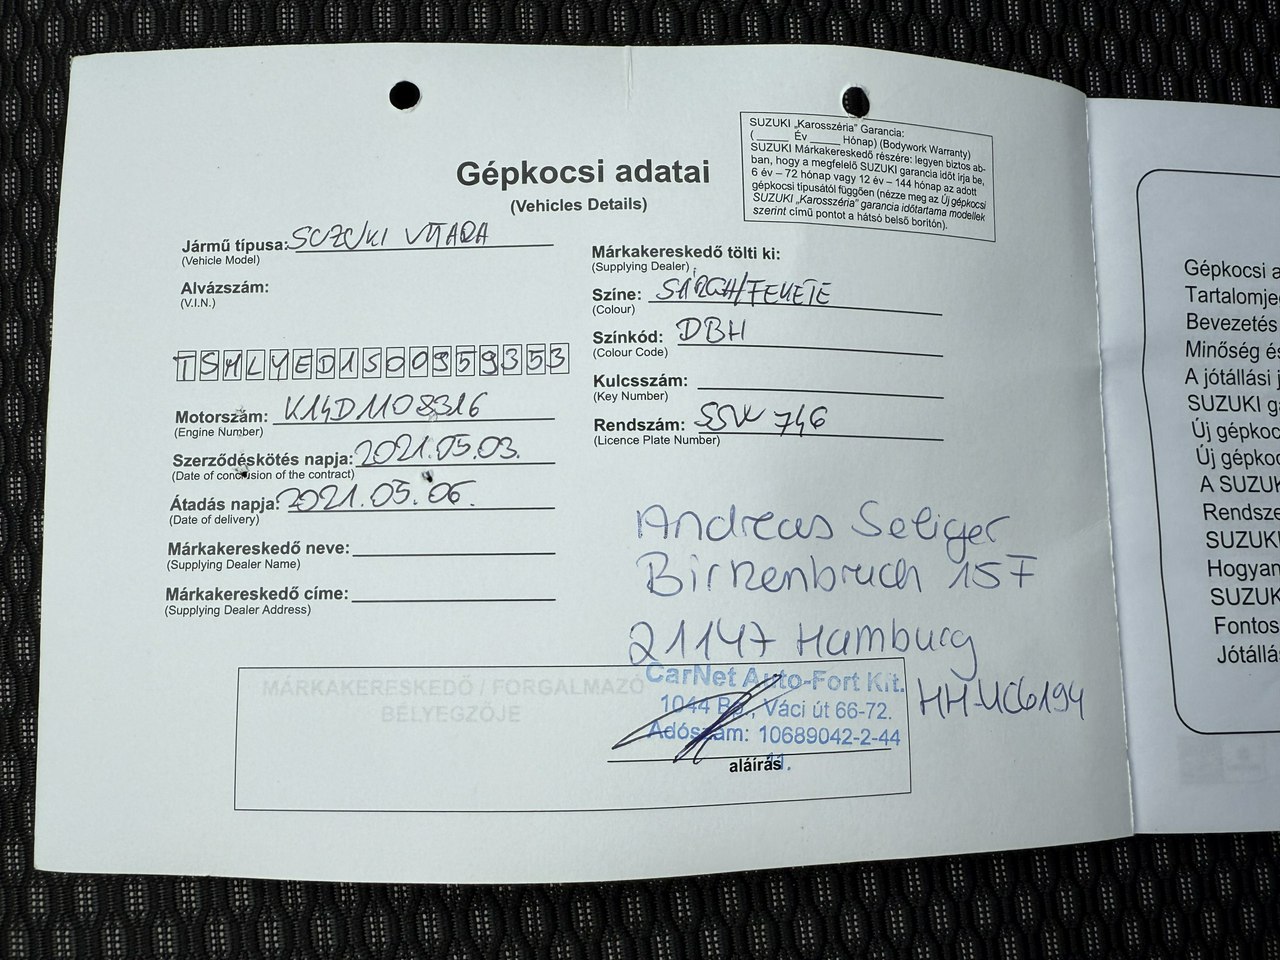 SUZUKI „Karosszéria" Garancia:
(_____ Év _____ Hónap) (Bodywork Warranty)
SUZUKI Márkakereskedő részére: legyen biztos ab-
ban, hogy a megfelelő SUZUKI garancia időt írja be,
6 év – 72 hónap vagy 12 év – 144 hónap az adott
gépkocsi típusától függően (nézze meg az Új gépkocsi
SUZUKI „Karosszéria" garancia időtartama modellek
szerint című pontot a hátsó belső borítón).
Gépkocsi adatai
(Vehicles Details)
Jármű típusa: SUZUKI VITARA
(Vehicle Model)
Alvázszám:
(V.I.N.)
TSMLYED1S00959353
Motorszám: K14D1108316
(Engine Number)
Szerződéskötés napja: 2021.05.03.
(Date of conclusion of the contract)
Átadás napja: 2021.05.06.
(Date of delivery)
Márkakereskedő neve:
(Supplying Dealer Name)
Márkakereskedő címe:
(Supplying Dealer Address)
Márkakereskedő tölti ki:
(Supplying Dealer)
Színe: SÁRGA/FEKETE
(Colour)
Színkód: DBH
(Colour Code)
Kulcsszám:
(Key Number)
Rendszám: SSW 746
(Licence Plate Number)
Andreas Seliger
Birkenbruch 15F
21147 Hamburg
HH-UC6194
MÁRKAKERESKEDŐ / FORGALMAZÓ
BÉLYEGZŐJE
CarNet Auto-Fort Kft.
1044 Bp., Váci út 66-72.
Adószám: 10689042-2-44
aláírás
Gépkocsi a
Tartalomje
Bevezetés
Minőség és
A jótállási j
SUZUKI g
Új gépkoc
Új gépkoc
A SUZUK
Rendsze
SUZUKI
Hogyan
SUZUK
Fontos
Jótállás